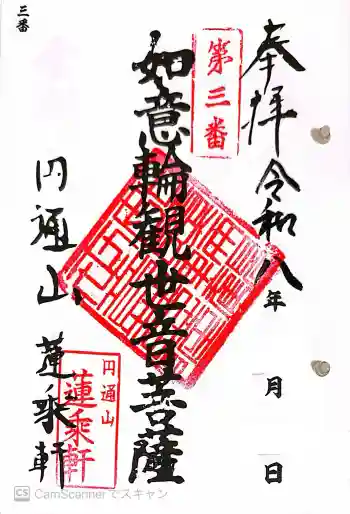 三番
奉拝 令和八年 月 日
第三番
如意輪観世音菩薩
円通山 蓮乗軒
円通山
蓮乗軒
CS CamScanner でスキャン